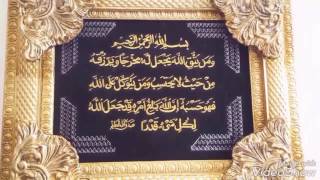 بسم الله الرحمن الرحيم
ومن يتق الله يجعل له مخرجا ويرزقه
من حيث لا يحتسب ومن يتوكل على الله
فهو حسبه إن الله بالغ أمره قد جعل الله
لكل شيء قدرا
VideoShow